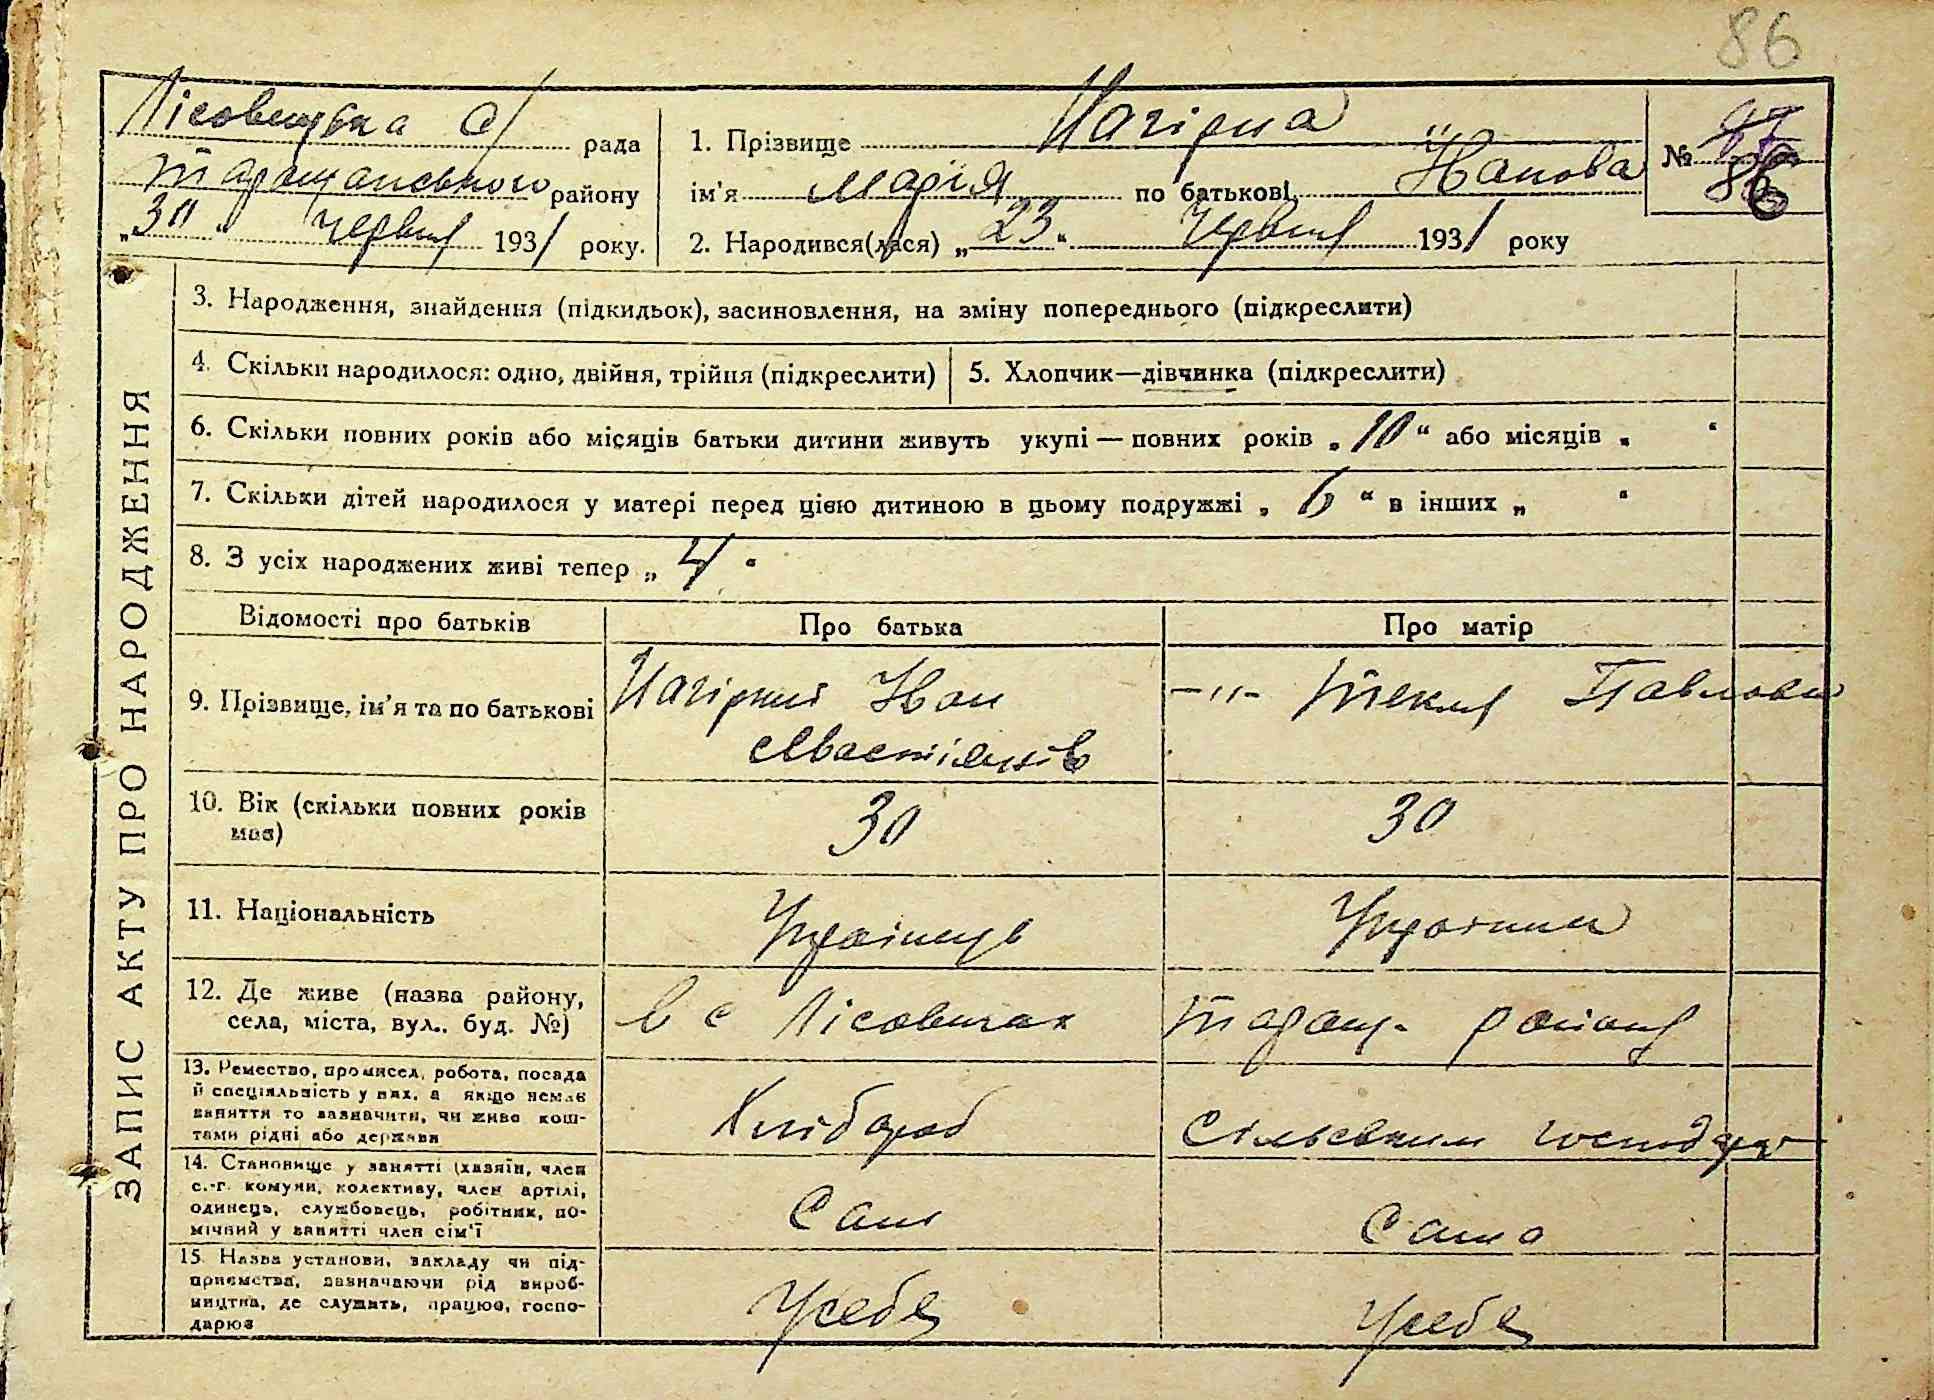 86
Лісовецька с/ рада
Таращанського району
„30" червня 1931 року.
1. Прізвище Нагірна
ім'я Марія по батькові Іванова
2. Народився(лася) „23" червня 1931 року
№ 86
ЗАПИС АКТУ ПРО НАРОДЖЕННЯ
3. Народження, знайдення (підкидьок), засиновлення, на зміну попереднього (підкреслити)
4. Скільки народилося: одно, двійня, трійня (підкреслити)
5. Хлопчик—дівчинка (підкреслити)
6. Скільки повних років або місяців батьки дитини живуть укупі — повних років „10" або місяців „ "
7. Скільки дітей народилося у матері перед цією дитиною в цьому подружжі „6" в інших „ "
8. З усіх народжених живі тепер „4"
Відомості про батьків
Про батька
Про матір
9. Прізвище, ім'я та по батькові
Нагірний Іван
-"- Текля Павлова
10. Вік (скільки повних років має)
30
30
11. Національність
Українець
Українка
12. Де живе (назва району,
села, міста, вул., буд. №)
в с Лісовичах
Таращ. району
13. Ремество, промисел, робота, посада
й спеціяльність у них, а якщо немає
заняття то зазначити, чи живе кош-
тами рідні або держави
Хлібороб
Сільським господар
14. Становище у занятті (хазяїн, член
с.-г. комуни, колективу, член артілі,
одинець, службовець, робітник, по-
мічний у занятті член сім'ї
Сам
Сама
15. Назва установи, закладу чи під-
приємства, зазначаючи рід вироб-
ництва, де служить, працює, госпо-
дарює
У себе
У себе